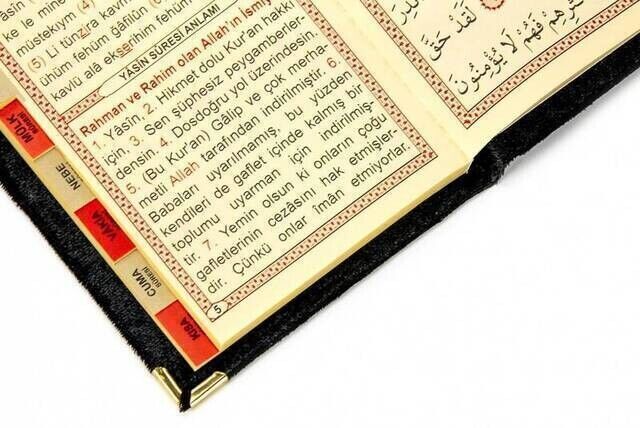 müstekıym (4)
(5) Li tünzira kavmen
ühüm fehüm ğâfilûn
kavlü alâ ekserihim fehüm
YÂSİN SÛRESİ ANLAMI
Rahman ve Rahim olan Allah'ın İsmiy
1. Yâsîn. 2. Hikmet dolu Kur'an hakkı
için, 3. Sen şüphesiz peygamberler-
densin. 4. Dosdoğru yol üzerindesin.
5. (Bu Kur'an) Gâlip ve çok merha-
metli Allah tarafından indirilmiştir. 6.
Babaları uyarılmamış, bu yüzden
kendileri de gaflet içinde kalmış bir
toplumu uyarman için indirilmiş-
tir. 7. Yemin olsun ki onların çoğu
gafletlerinin cezâsını hak etmişler-
dir. Çünkü onlar îmân etmiyorlar.
5
لَقَدْ حَقَّ
فَهُمْ لَا يُؤْمِنُونَ
MÜLK
SÛRESİ
NEBE
VAKIA
CUMA
SURESİ
KISA